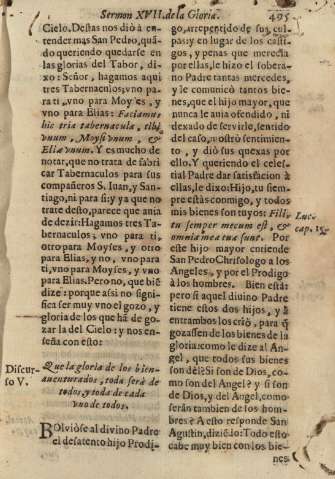 Sermon XVII. de la Gloria. 495
Cielo. Destas nos diò à en-
tender mas San Pedro, quã-
do queriendo quedarse en
las glorias del Tabor, di-
xo: Señor, hagamos aqui
tres Tabernaculos; vno pa-
ra ti, vno para Moyses, y
vno para Elias: Faciamus
hic tria tabernacula, tibi
vnum, Moysi vnum, &
Eliæ vnum. Y es mucho de
notar, que no trata de fabri-
car Tabernaculos para sus
compañeros S. Iuan, y San-
tiago, ni para si: y ya que no
trate desto, parece que auia
de dezir: Hagamos tres Ta-
bernaculos; vno para ti,
otro para Moyses, y otro
para Elias, y no, vno para
ti, vno para Moyses, y vno
para Elias. Pero no, que biẽ
dize: porque assi no signi-
fica ser muy vno el gozo, y
gloria de los que hã de go-
zar la del Cielo: y nos en-
seña con esto:
Discur-
so V.
Que la gloria de los bien-
auenturados, toda será de
todos, y toda de cada
vno de todos.
BOlviòse al divino Padre
el desatento hijo Prodi-
go, arrepentido de sus cul-
pas: y en lugar de los casti-
gos, y penas que merecia
por ellas, le hizo el sobera-
no Padre tantas mercedes,
y le comunicò tantos bie-
nes, que el hijo mayor, que
nunca le auia ofendido, ni
dexado de servirle, sentido
del caso, mostrò sentimien-
to, y diò sus quexas por
ello. Y queriendo el celes-
tial Padre dar satisfacion à
ellas, le dixo: Hijo, tu siem-
pre estàs conmigo, y todos
mis bienes son tuyos: Fili,
tu semper mecum est, &
omnia mea tua sunt. Por
Luc.
cap. 15.
este hijo mayor entiende
San Pedro Chrisologo a los
Angeles, y por el Prodigo
à los hombres. Bien està:
pero si aquel divino Padre
tiene estos dos hijos, y à
entrambos los criò, para q̃
gozassen de los bienes de la
gloria: como le dize al An-
gel, que todos sus bienes
son dèl? Si son de Dios, co-
mo son del Angel? y si son
de Dios, y del Angel, como
seràn tambien de los hom-
bres? A esto responde San
Agustin, diziẽdo: Todo esto
cabe muy bien en los bie-
nes